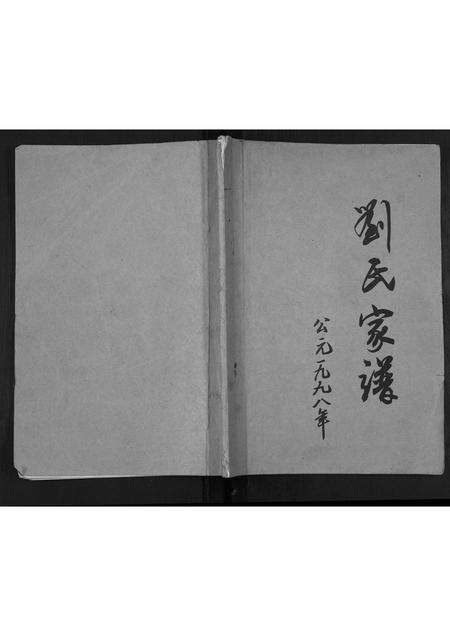 劉氏家譜
公元一九九八年